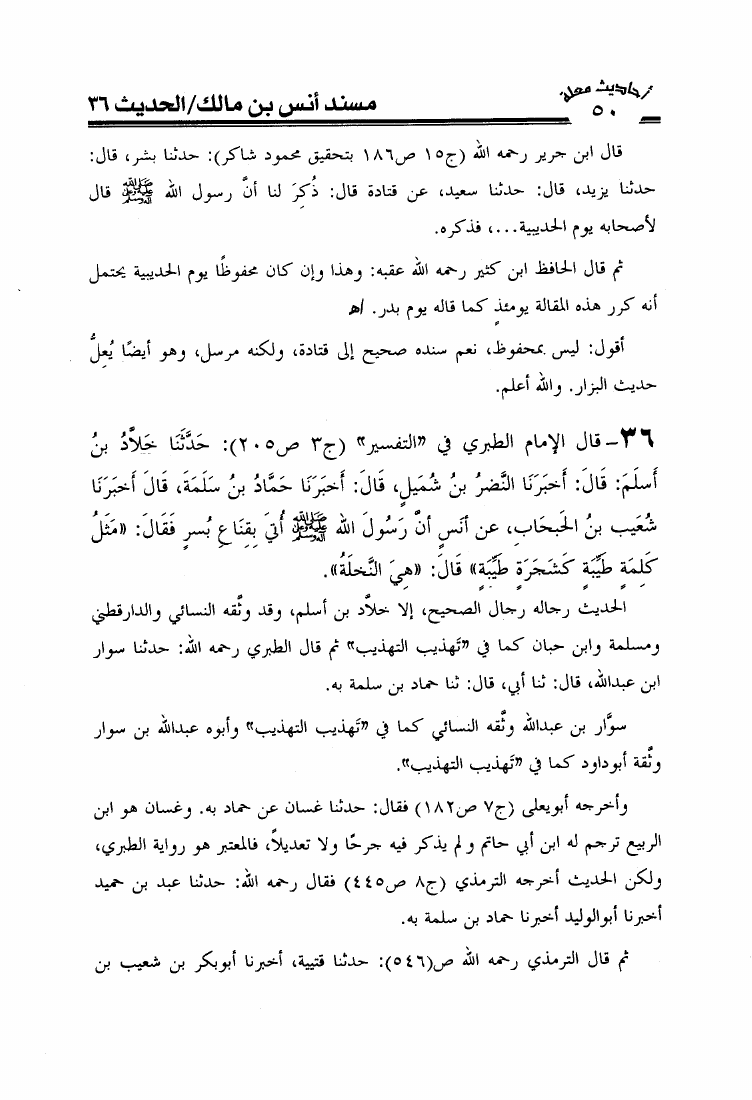 أحاديث معلة
٥٠
مسند أنس بن مالك/الحديث ٣٦
قال ابن جرير رحمه الله (ج١٥ ص١٨٦ بتحقيق محمود شاكر): حدثنا بشر، قال:
حدثنا يزيد، قال: حدثنا سعيد، عن قتادة قال: ذُكِرَ لنا أنَّ رسول الله ﷺ قال
لأصحابه يوم الحديبية...، فذكره.
ثم قال الحافظ ابن كثير رحمه الله عقبه: وهذا وإن كان محفوظًا يوم الحديبية يحتمل
أنه كرر هذه المقالة يومئذٍ كما قاله يوم بدر. اهـ
أقول: ليس بمحفوظ، نعم سنده صحيح إلى قتادة، ولكنه مرسل، وهو أيضًا يُعِلُّ
حديث البزار. والله أعلم.
٣٦- قال الإمام الطبري في «التفسير» (ج٣ ص٢٠٥): حَدَّثَنَا خَلاَّدُ بنُ
أَسلَمَ: قَالَ: أَخبَرَنَا النَّضرُ بنُ شُمَيلٍ، قَالَ: أَخبَرَنَا حَمَّادُ بنُ سَلَمَةَ، قَالَ أَخبَرَنَا
شُعَيب بنُ الحَبحَابِ، عن أنَسٍ أنَّ رَسُولَ الله ﷺ أُتيَ بِقِنَاعِ بُسرٍ فَقَالَ: «مَثَلُ
كَلِمَةٍ طَيِّبَةٍ كَشَجَرَةٍ طَيِّبَةٍ» قَالَ: «هِيَ النَّخلَةُ».
الحديث رجاله رجال الصحيح، إلا خلاَّد بن أسلم، وقد وثَّقه النسائي والدارقطني
ومسلمة وابن حبان كما في «تَهذيب التهذيب» ثم قال الطبري رحمه الله: حدثنا سوار
ابن عبدالله، قال: ثنا أبي، قال: ثنا حماد بن سلمة به.
سوَّار بن عبدالله وثَّقه النسائي كما في «تَهذيب التهذيب» وأبوه عبدالله بن سوار
وثَّقة أبوداود كما في «تَهذيب التهذيب».
وأخرجه أبويعلى (ج٧ ص١٨٢) فقال: حدثنا غسان عن حماد به. وغسان هو ابن
الربيع ترجم له ابن أبي حاتم و لم يذكر فيه جرحًا ولا تعديلاً، فالمعتبر هو رواية الطبري،
ولكن الحديث أخرجه الترمذي (ج٨ ص٤٤٥) فقال رحمه الله: حدثنا عبد بن حميد
أخبرنا أبوالوليد أخبرنا حماد بن سلمة به.
ثم قال الترمذي رحمه الله ص(٥٤٦): حدثنا قتيبة، أخبرنا أبوبكر بن شعيب بن